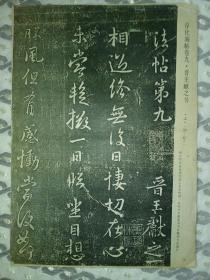 淳化阁帖卷九·晋王献之书
法帖第九 晉王獻之
相過終無復日悽切在心
未嘗暫撥一日臨坐目想
勝風但有感慟當復如